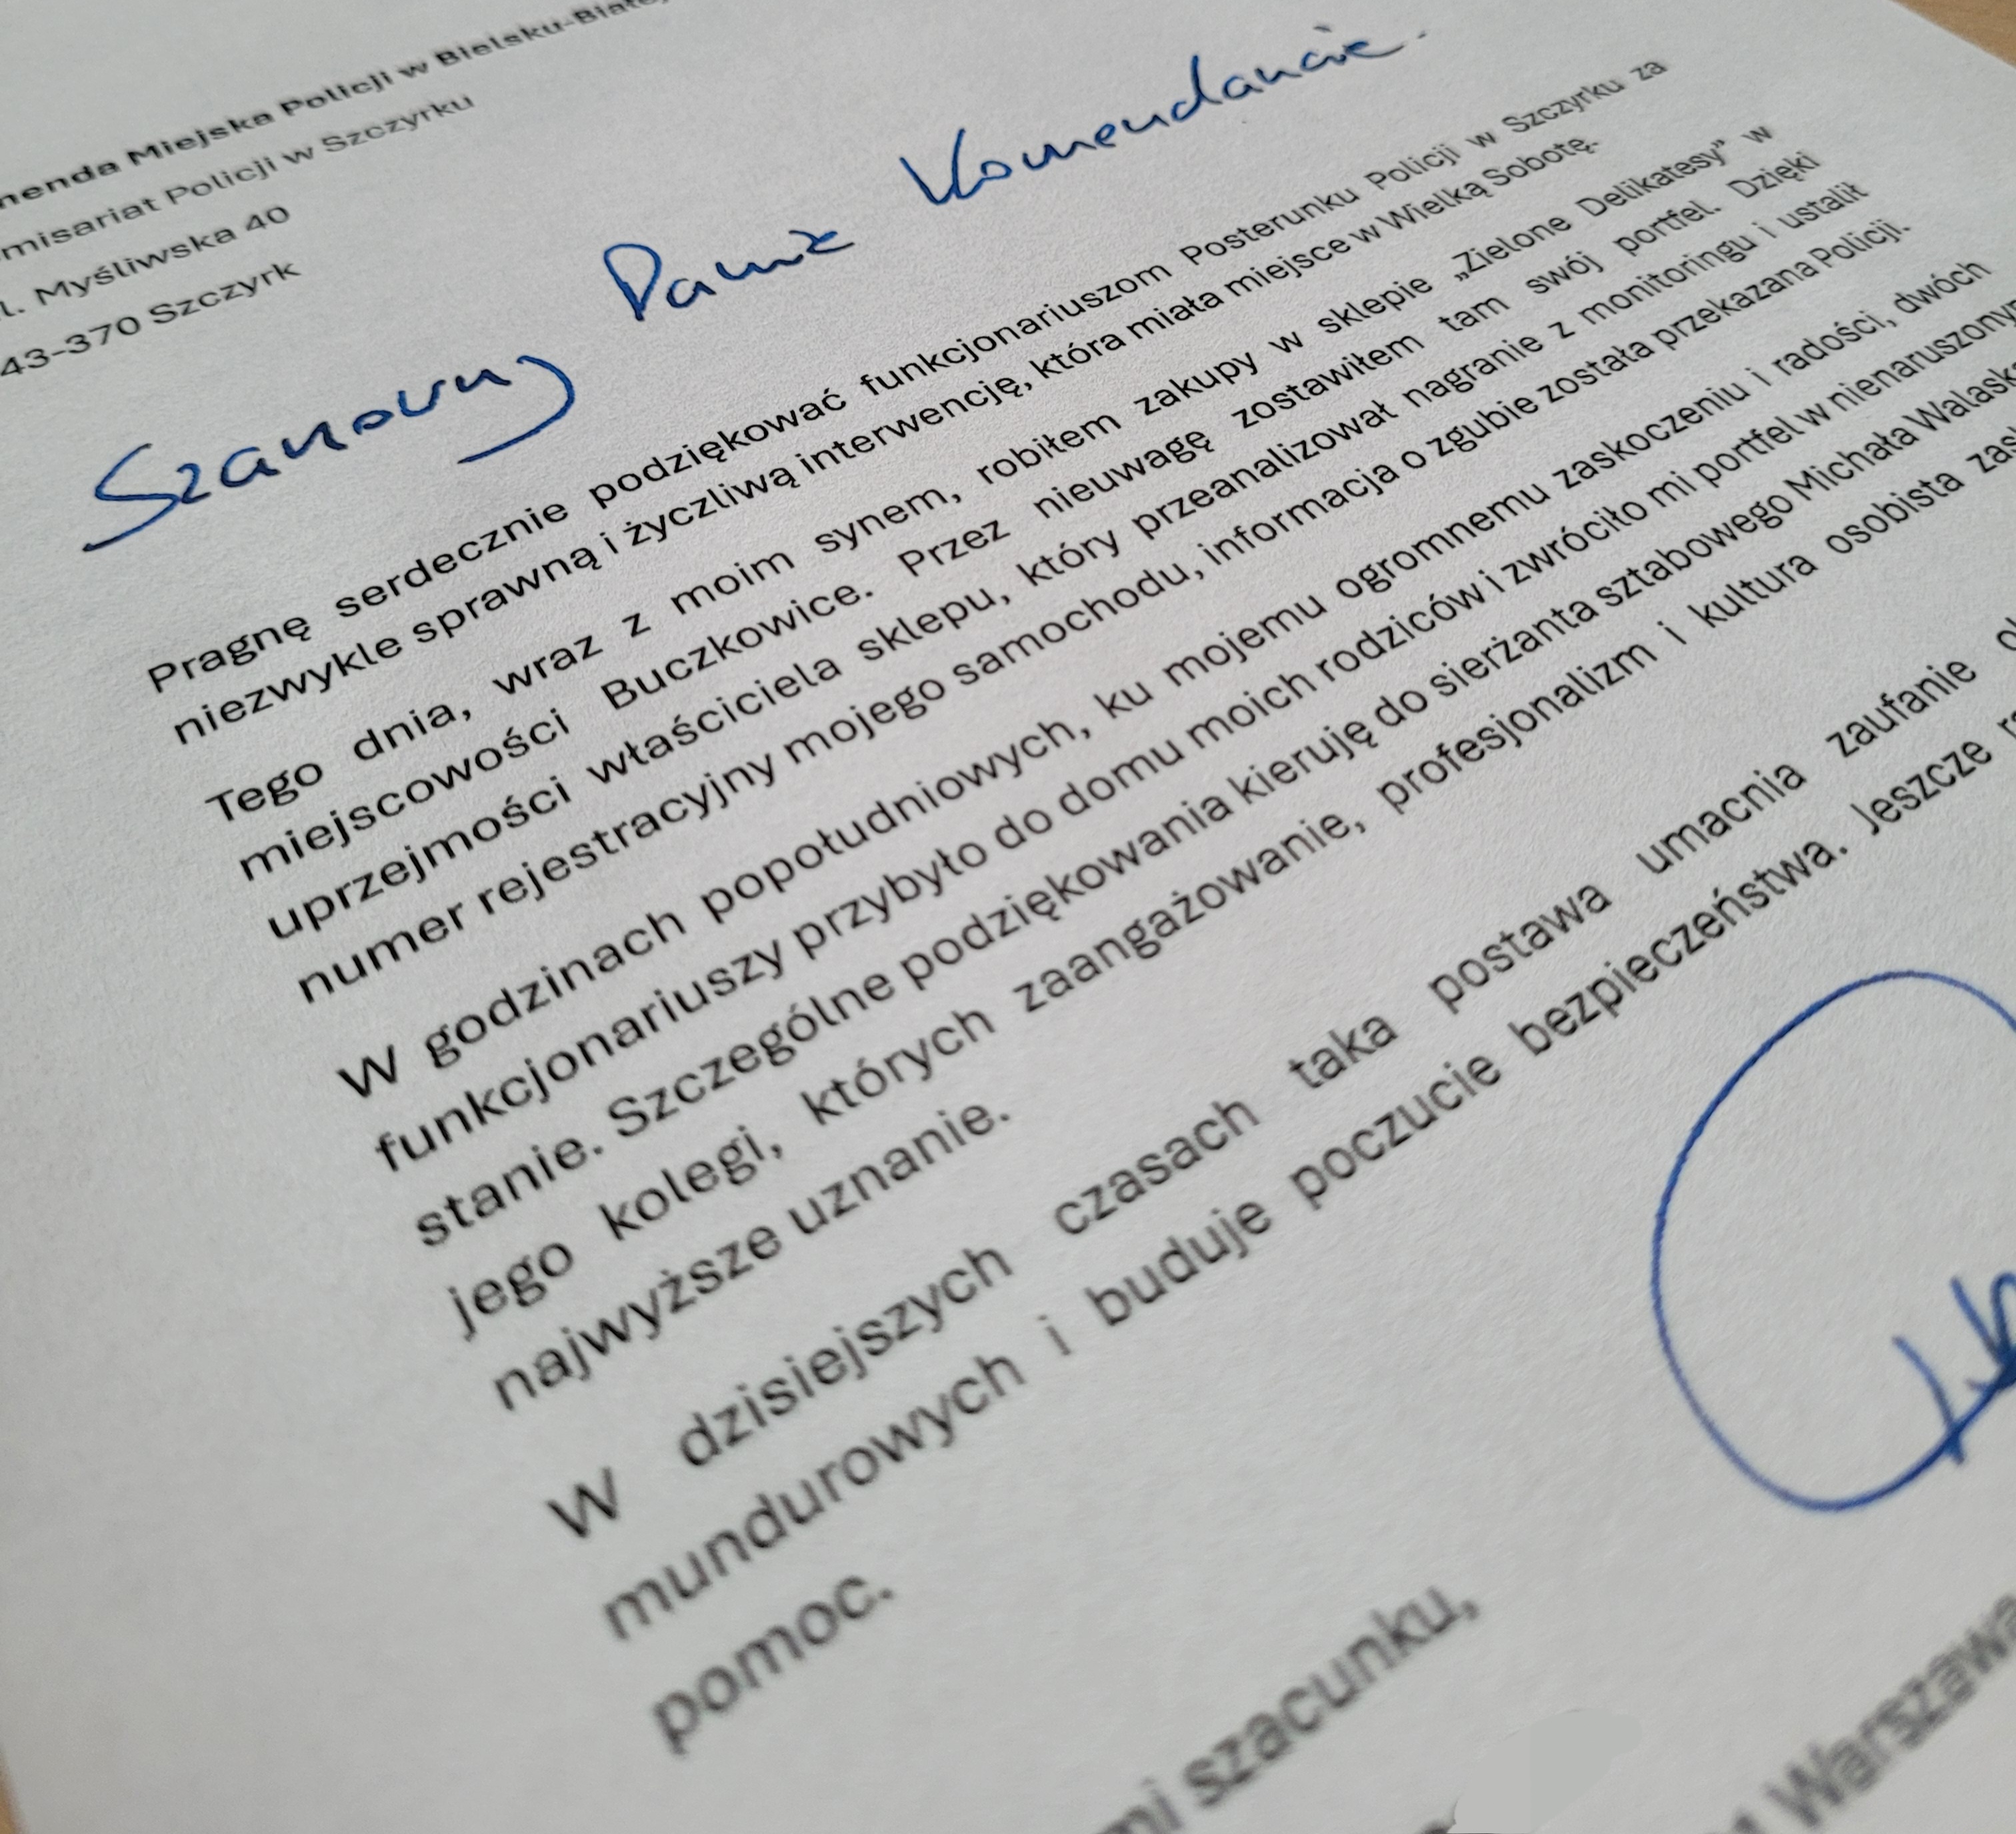 Miejska Policji w Bielsku-Białej
Policji w Szczyrku
Myśliwska 40
43-370 Szczyrk
Szanowny Panie Komendancie.
Pragnę serdecznie podziękować funkcjonariuszom Posterunku Policji w Szczyrku za
niezwykle sprawną i życzliwą interwencję, która miała miejsce w Wielką Sobotę.
Tego dnia, wraz z moim synem, robiłem zakupy w sklepie „Zielone Delikatesy” w
miejscowości Buczkowice. Przez nieuwagę zostawiłem tam swój portfel. Dzięki
uprzejmości właściciela sklepu, który przeanalizował nagranie z monitoringu i ustalił
numer rejestracyjny mojego samochodu, informacja o zgubie została przekazana Policji.
W godzinach popołudniowych, ku mojemu ogromnemu zaskoczeniu i radości, dwóch
funkcjonariuszy przybyło do domu moich rodziców i zwróciło mi portfel w nienaruszonym
stanie. Szczególne podziękowania kieruję do sierżanta sztabowego Michała
jego kolegi, których zaangażowanie, profesjonalizm i kultura osobista
najwyższe uznanie.
W dzisiejszych czasach taka postawa umacnia zaufanie
mundurowych i buduje poczucie bezpieczeństwa. Jeszcze
pomoc.
szacunku,
Warszawa